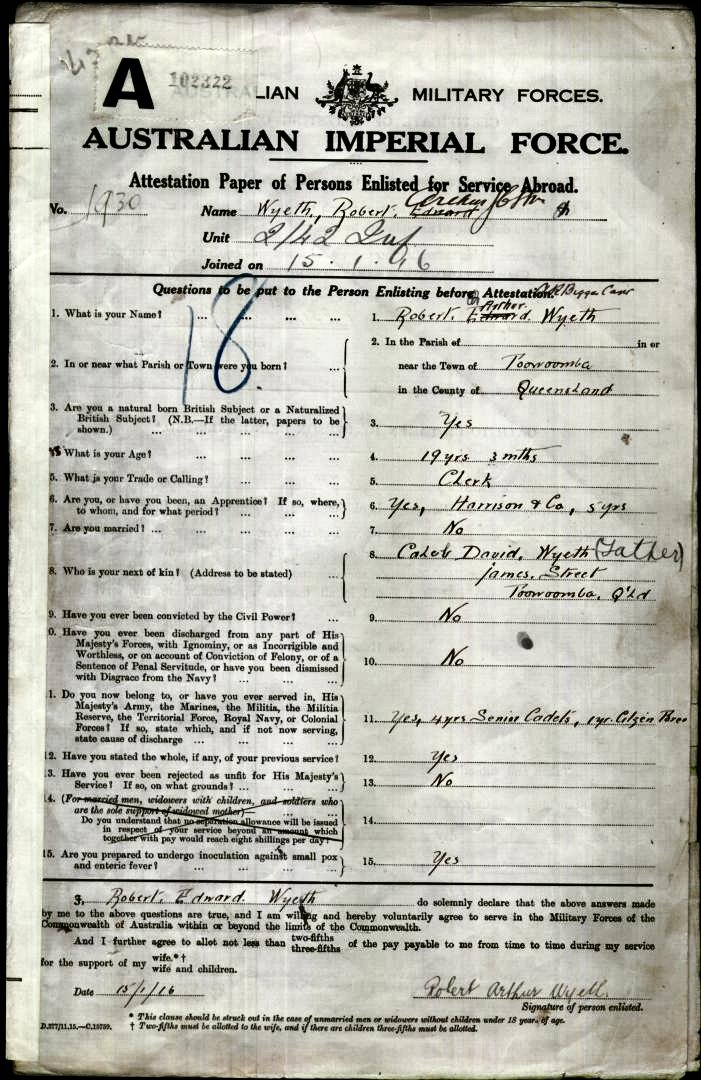 A 102322
LIAN MILITARY FORCES.
AUSTRALIAN IMPERIAL FORCE.
Attestation Paper of Persons Enlisted for Service Abroad.
No. 1930 Name Wyeth, Robert. Edward Arthur
Unit 2/42 Inf
Joined on 15.1.16
Questions to be put to the Person Enlisting before Attestation.
18.
1. What is your Name? ... ... ... 1. Robert. Edward. Arthur. Wyeth
2. In or near what Parish or Town were you born? ... 2. In the Parish of in or
near the Town of Toowoomba
in the County of Queensland
3. Are you a natural born British Subject or a Naturalized
British Subject? (N.B.—If the latter, papers to be
shown.) ... ... ... ... 3. Yes
What is your Age? ... ... ... 4. 19 yrs 3 mths
5. What is your Trade or Calling? ... ... ... 5. Clerk
6. Are you, or have you been, an Apprentice? If so, where,
to whom, and for what period? ... ... ... 6. Yes, Harrison & Co, 5 yrs
7. Are you married? ... ... ... ... 7. No
8. Who is your next of kin? (Address to be stated) ... 8. Caleb David. Wyeth (Father)
James. Street
Toowoomba. Q'ld
9. Have you ever been convicted by the Civil Power? ... 9. No
0. Have you ever been discharged from any part of His
Majesty's Forces, with Ignominy, or as Incorrigible and
Worthless, or on account of Conviction of Felony, or of a
Sentence of Penal Servitude, or have you been dismissed
with Disgrace from the Navy? ... ... ... 10. No
1. Do you now belong to, or have you ever served in, His
Majesty's Army, the Marines, the Militia, the Militia
Reserve, the Territorial Force, Royal Navy, or Colonial
Forces? If so, state which, and if not now serving,
state cause of discharge ... ... ... 11. Yes, 4 yrs Senior Cadets, 1 yr. Citizen
12. Have you stated the whole, if any, of your previous service? 12. Yes
13. Have you ever been rejected as unfit for His Majesty's
Service? If so, on what grounds? ... ... 13. No
14. (For married men, widowers with children, and soldiers who
are the sole support of widowed mother)—
Do you understand that no separation allowance will be issued
in respect of your service beyond an amount which
together with pay would reach eight shillings per day? 14.
15. Are you prepared to undergo inoculation against small pox
and enteric fever? ... ... ... ... 15. Yes
I, Robert. Edward. Wyeth do solemnly declare that the above answers made
by me to the above questions are true, and I am willing and hereby voluntarily agree to serve in the Military Forces of the
Commonwealth of Australia within or beyond the limits of the Commonwealth.
And I further agree to allot not less than two-fifths three-fifths of the pay payable to me from time to time during my service
for the support of my wife.*† wife and children.
Date 15/1/16 Robert Arthur Wyeth.
Signature of person enlisted.
* This clause should be struck out in the case of unmarried men or widowers without children under 18 years of age.
D.277/11.15.—C.15759. † Two-fifths must be allotted to the wife, and if there are children three-fifths must be allotted.